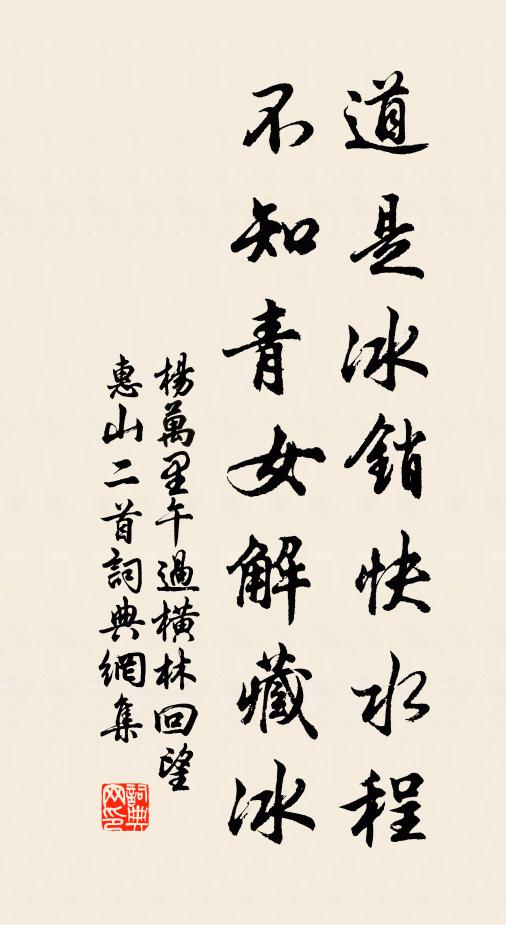 道是冰銷快水程
不知青女解藏冰
楊萬里午過橫林回望
惠山二首詞典網集
詞典网印